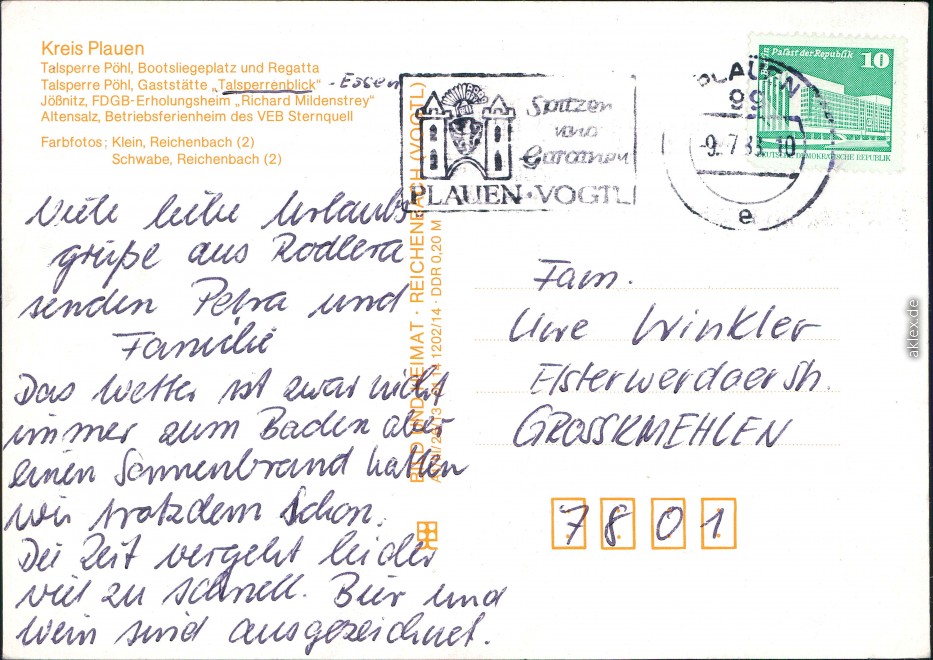 Kreis Plauen
Talsperre Pöhl, Bootsliegeplatz und Regatta
Talsperre Pöhl, Gaststätte „Talsperrenblick“ - Essen
Jößnitz, FDGB-Erholungsheim „Richard Mildenstrey“
Altensalz, Betriebsferienheim des VEB Sternquell
Farbfotos: Klein, Reichenbach (2)
Schwabe, Reichenbach (2)
Viele liebe Urlaubs
grüße aus Rodlera
senden Petra und
Familie
Das Wetter ist zwar nicht
immer zum Baden aber
einen Sonnenbrand hatten
wir trotzdem schon.
Die Zeit vergeht leider
viel zu schnell. Bier und
Wein sind ausgezeichnet.
BILD UND HEIMAT · REICHENBACH (VOGTL)
1202/14 · DDR 0,20 M
Spitzen
und
Gardinen
PLAUEN · VOGTL
PLAUEN
99
-9.-7.83.-10
e
Berlin, Palast der Republik 10
DEUTSCHE DEMOKRATISCHE REPUBLIK
Fam.
Uwe Winkler
Elsterwerdaer Str.
GROSSKMEHLEN
7801
aklex.de